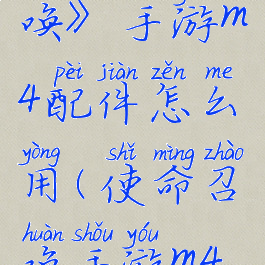 唤》手游m
pèi jiàn zěn me
4配件怎么
yòng shǐ mìng zhào
用(使命召
huàn shǒu yóu
唤手游m4